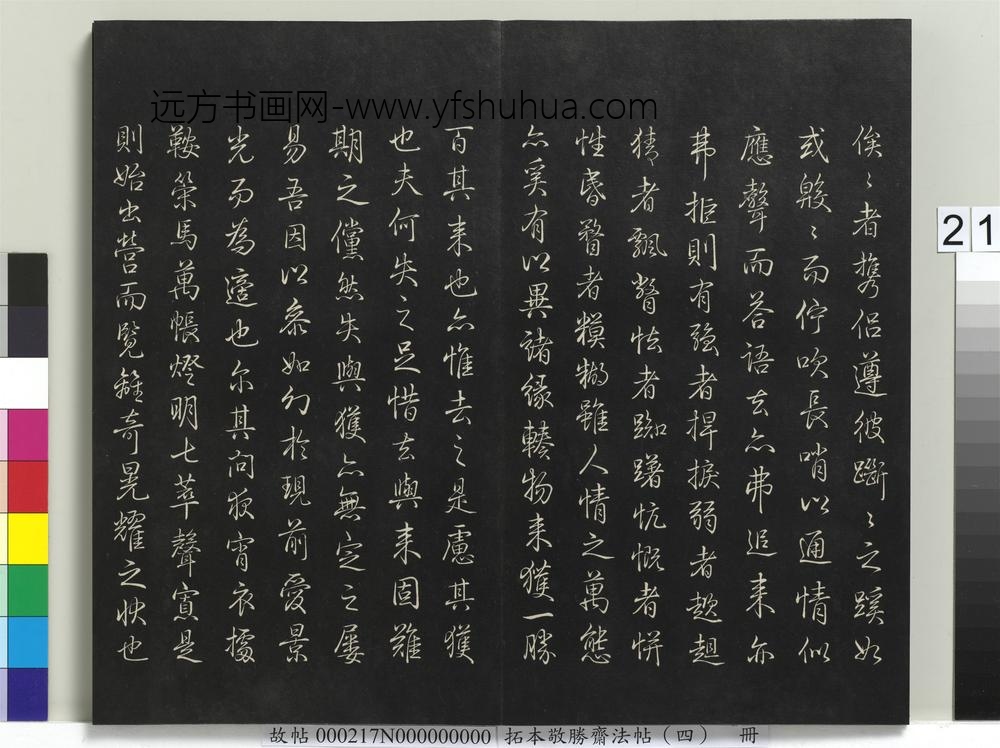 远方书画网-www.yfshuhua.com
俟〻者携侣遵彼斷〻之蹊如
或毅〻而佇吹長哨以通情似
應聲而答語去亦弗追来亦
弗拒則有强者捍捩弱者趑趄
猜者飄瞥怯者踟躇忼慨者恲
性昏瞀者糢糊雖人情之萬態
亦奚有以異諸緣轃物来獲一勝
百其来也亦惟去之是慮其獲
也夫何失之足惜去與来固難
期之儻然失與獲亦無定之屢
易吾因以參如幻於現前愛景
光而為適也尔其问夜宵衣據
鞍策馬萬帳燈明七萃聲寘是
則始出營而覽雞竒晃耀之昳也
21
故帖 000217N000000000 拓本敬勝齋法帖(四) 冊